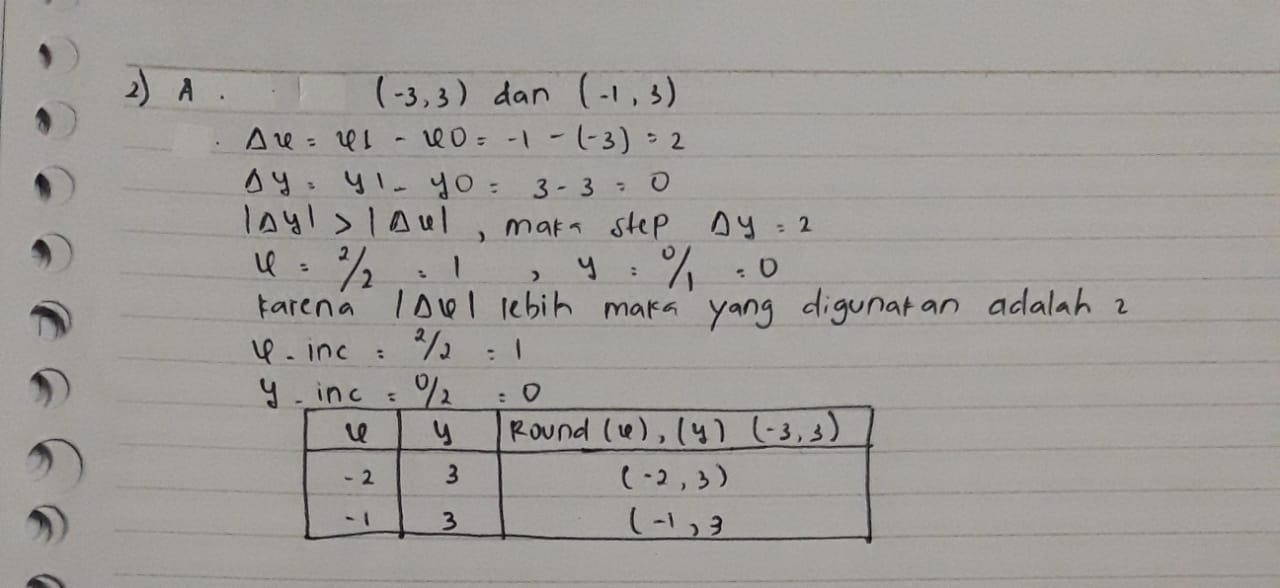 2) A. (-3,3) dan (-1,3)
Δx = x1 - x0 = -1 - (-3) = 2
Δy = y1 - y0 = 3-3 = 0
|Δy| > |Δx|, maka step Δy = 2
x = 2/2 = 1, y = 0/1 = 0
karena |Δx| lebih maka yang digunakan adalah 2
x-inc = 2/2 = 1
y-inc = 0/2 = 0
x y Round (x), (y) (-3,3)
-2 3 (-2,3)
-1 3 (-1,3